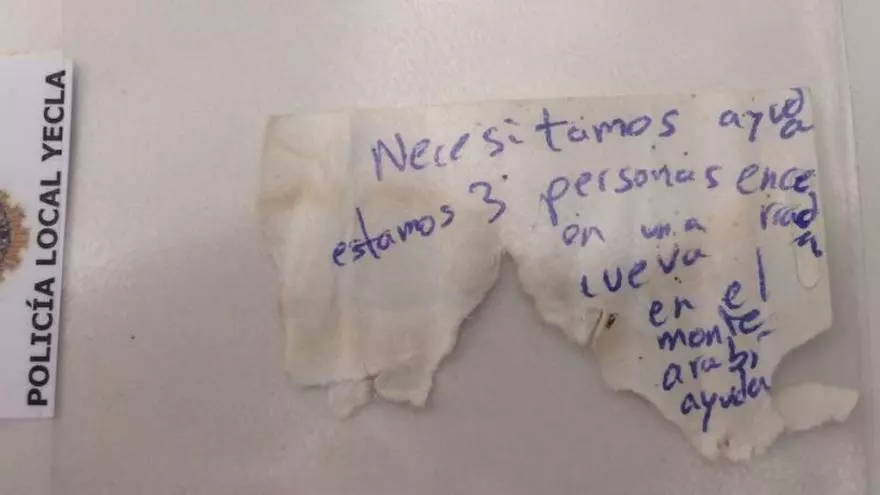 POLICÍA LOCAL YECLA
Necesitamos ayuda
estamos 3 personas ence
rrada
en una
cueva
en el
monte
arabí
ayuda